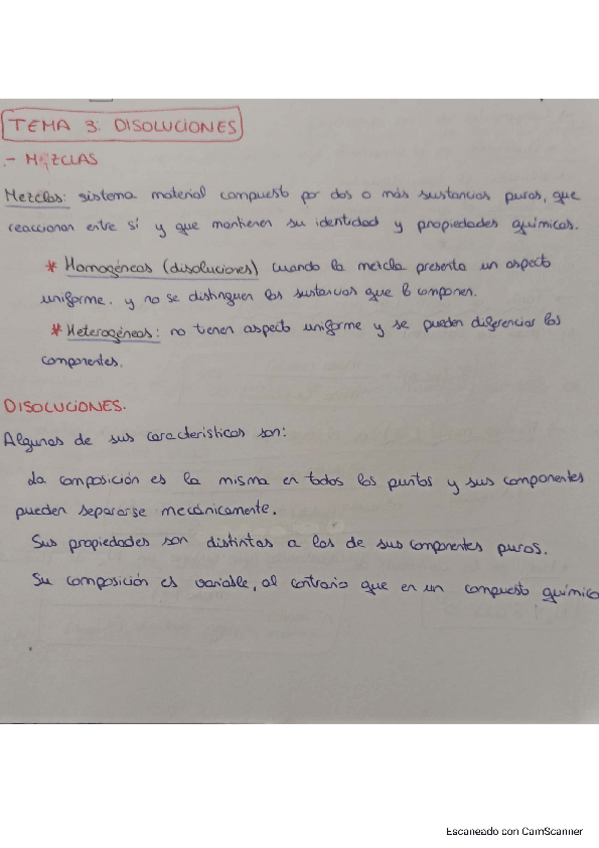 TEMA 3: DISOLUCIONES
.- MEZCLAS
Mezclas: sistema material compuesto por dos o más sustancias puras, que
reaccionan entre sí y que mantienen su identidad y propiedades químicas.
* Homogéneas (disoluciones) cuando la mezcla presenta un aspecto
uniforme. y no se distinguen las sustancias que lo componen.
* Heterogéneas: no tienen aspecto uniforme y se pueden diferenciar los
componentes.
DISOLUCIONES.
Algunas de sus características son:
La composición es la misma en todos los puntos y sus componentes
pueden separarse mecánicamente.
Sus propiedades son distintas a las de sus componentes puros.
Su composición es variable, al contrario que en un compuesto químico
Escaneado con CamScanner